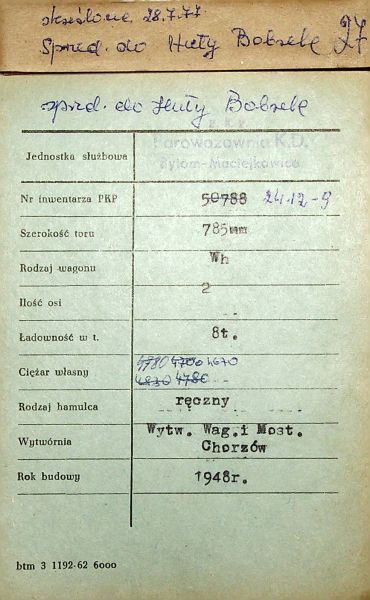 skreślone 28.7.77
Spred. do Huty Bobrek 27
spred. do Huty Bobrek
P.K.P.
Jednostka służbowa Parowozownia K.D.
Bytom-Maciejkowice
Nr inwentarza PKP 50788 24.12-9
Szerokość toru 785mm
Rodzaj wagonu Wh
Ilość osi 2
Ładowność w t. 8t.
4780 4700 4670
Ciężar własny
4830 4780
Rodzaj hamulca ręczny
Wytwórnia Wytw. Wag.i Most.
Chorzów
Rok budowy 1948r.
btm 3 1192-62 6000